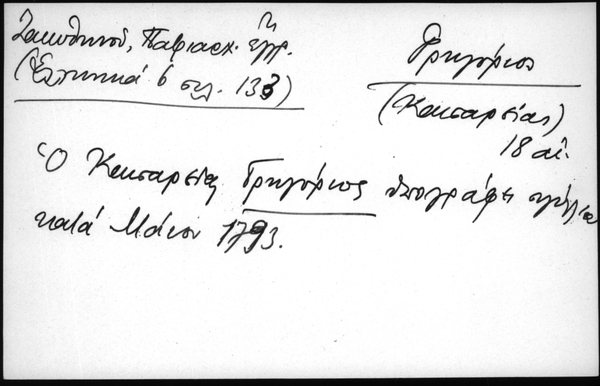 Ζακυθηνοῦ, Πατριαρχ. ἔγγρ.
(Ἑλληνικά 6 σελ. 133)
Γρηγόριος
(Καισαρείας)
18 αἰ.
Ὁ Καισαρείας Γρηγόριος ὑπογράφει
κατά Μάιον 1793.